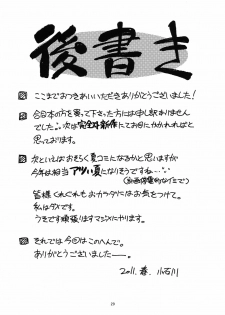 後書き
ここまでおつきあいいただきありがとうございました!
今回本の方を買って下さった方には申し訳ありません
でした。次は完全本新作にてお目にかかれればと
思っております。
次といえばおそらく夏コミになるかと思いますが
今年は相当アツい夏になりそうですね
皆様くれぐれもおカラダにはお気をつけて。
私はダメです。
うきです頑張りますマジメにやります。
それでは今回はこのへんで。
ありがとうございましたー。
2011. 春. 小石川